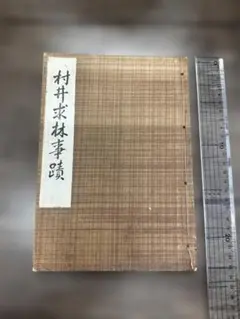 村井求林事蹟